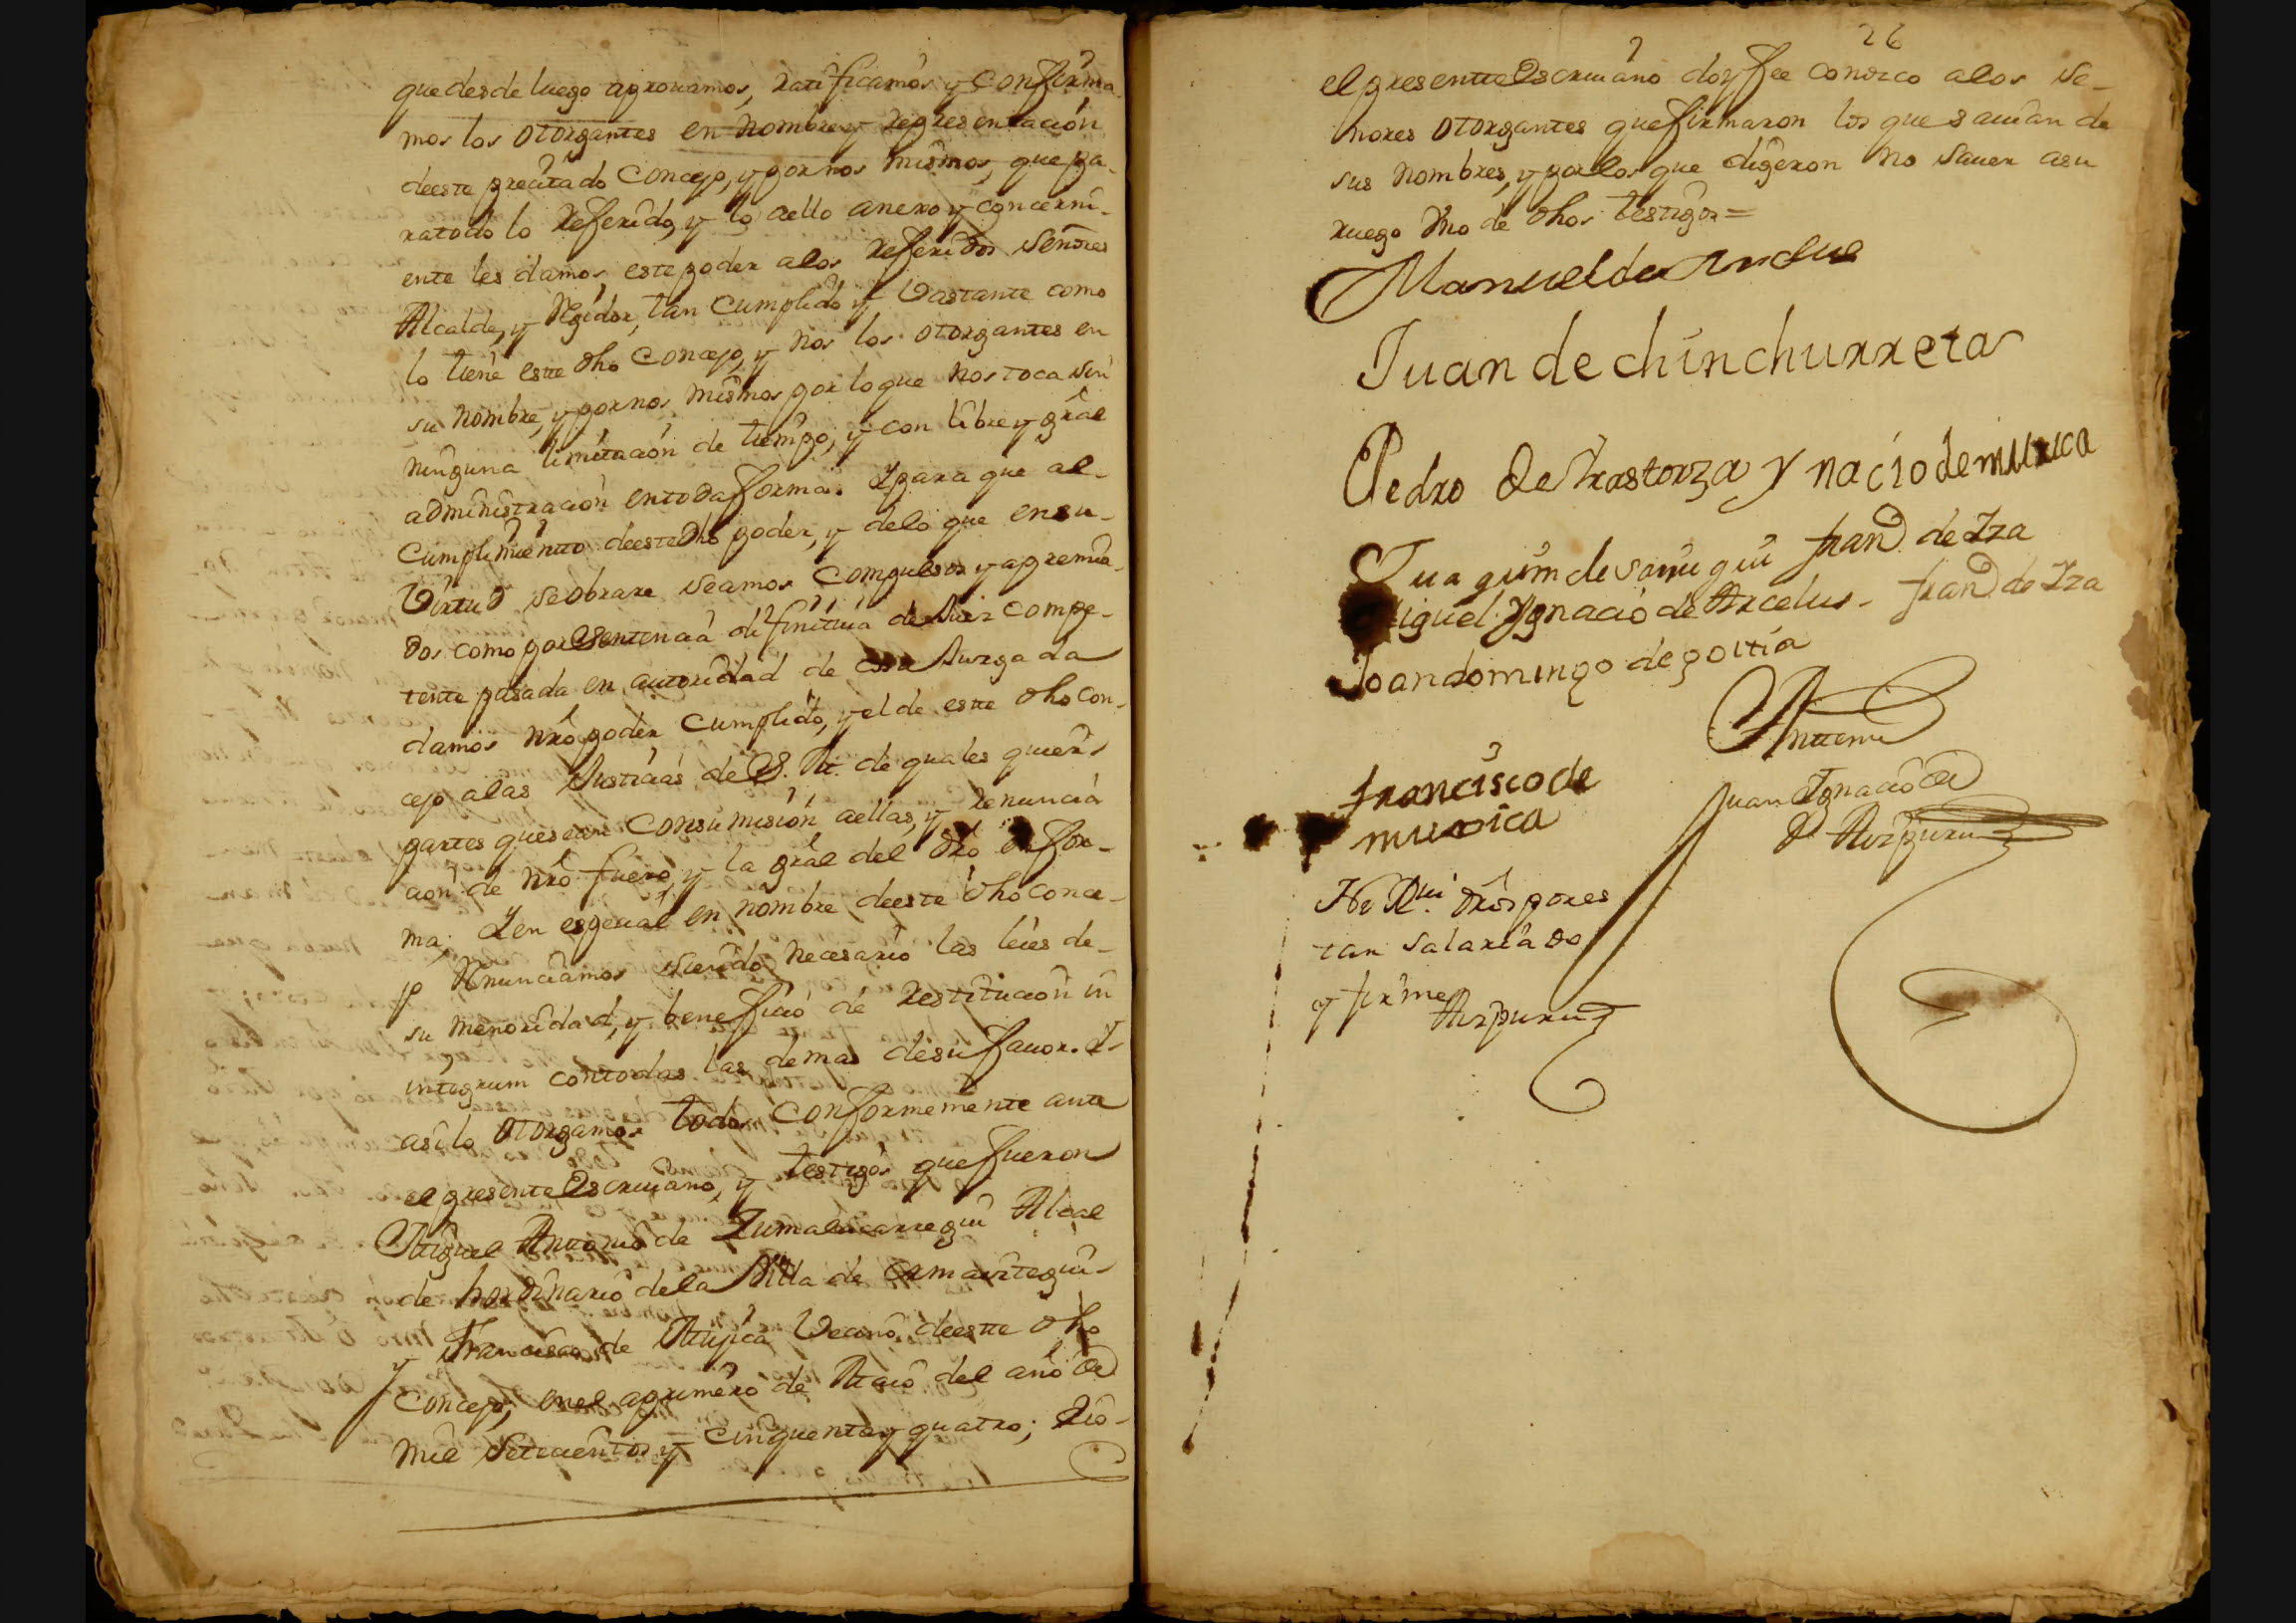 que desde luego aprouamos, ratificamos y confirma
mos los otorgantes en nombre y representación
de este precitado Concejo, y por nos mismos, que pa-
ra todo lo referido, y lo a ello anexo y concerni-
ente les damos este poder a los referidos Señores
Alcalde, y Regidor, tan cumplido y vastante como
lo tiene este dho Concejo, y nos los otorgantes en
su nombre, y por nos mismos por lo que nos toca sin
ninguna limitación de tiempo, y con libre y gral
administración en toda forma. Y para que al-
cumplimiento de este dho poder, y de lo que en su-
virtud se obrare seamos compulsos y apremia-
dos como por Sentencia difinitiua de Juez compe-
tente pasada en autoridad de cosa Juzgada
damos nro poder cumplido, y el de este dho con-
cejo a las Justicias de S. M. de quales quiera
partes que sean con sumisión a ellas, y renuncia
cion de nro fuero, y la gral del dro en for-
ma; Y en especial en nombre de este dho conce-
jo Renunciamos siendo necesario las leies de-
su menoridad, y beneficio de restitución in
integrum con todas las demas de su fauor. Y
asi lo otorgamos todos conformemente ante
el presente Escriuano, y testigos que fueron
Miguel Antonio de Zumalacarregui Alcal
de hordinario de la Villa de Ormaiztegui
y Francisco de Mujica Vecino de este dho
Concejo, en el a primero de Maio del año de
mil Setecientos y cinquenta y quatro; Y io-
26
el presente Escriuano doy fee conozco a los Se-
ñores otorgantes que firmaron los que sauian de
sus nombres, y por los que digeron no sauer a su
ruego Vno de dhos testigos =
Manuel de
Juan de chinchurreta
Pedro de Yrastorza y nacio de muxica
Jua quim de Fran.co de Iza
Miguel Ygnacio de Arcelus - fran.co de Iza
Joan domingo de goitia
Antemi
francisco de
muxica
Juan Ignacio de
Aizpuru
dros por es
tar salariado
y firme
Aizpuru